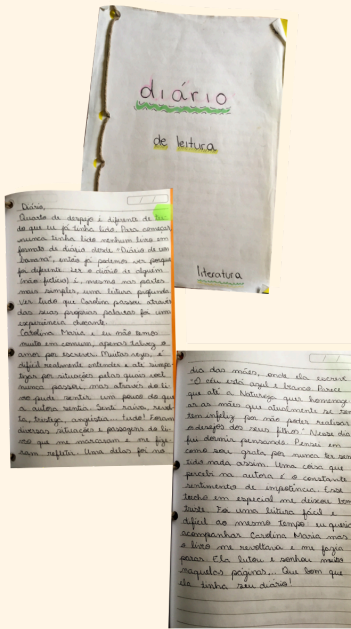 diário
de leitura
literatura
Diário
Quarto de despejo é diferente de tu-
do que eu já tinha lido. Para começar,
nunca tinha lido nenhum livro em
formato de diário desde "Diário de um
banana", então já podemos ver porque
foi diferente. Ler o diário de alguém
(não fictício) é, mesmo nas partes
mais simples, uma leitura profunda.
Ver tudo que Carolina passou através
das suas próprias palavras foi uma
experiência chocante.
Carolina Maria e eu não temos
muito em comum, apenas talvez o
amor por escrever. Muitas vezes, é
difícil realmente entender e até simpa-
tizar por situações pelas quais você
nunca passou, mas através do li-
vro pude sentir um pouco do que
a autora sentia. Senti raiva, revol-
ta, tristeza, angústia... tudo! Foram
diversas situações e passagens do li-
vro que me marcaram e me fize-
ram refletir. Uma delas foi no
dia das mães, onde ela escreve
"O céu está azul e branco. Parece
que até a Natureza quer homenage-
ar as mães que atualmente se sen-
tem infeliz por não poder realisar
o desejos dos seus filhos". Nesse dia
fui dormir pensando. Pensei em
como sou grata por nunca ter sen-
tido nada assim. Uma coisa que
percebi na autora é o constante
sentimento de impotência. Esse
trecho em especial me deixou bem
triste. Foi uma leitura fácil e
difícil ao mesmo tempo, eu queria
acompanhar Carolina Maria mas
o livro me revoltava e me fazia
parar. Ela lutou e sonhou muito
naquelas páginas... Que bom que
ela tinha seu diário!